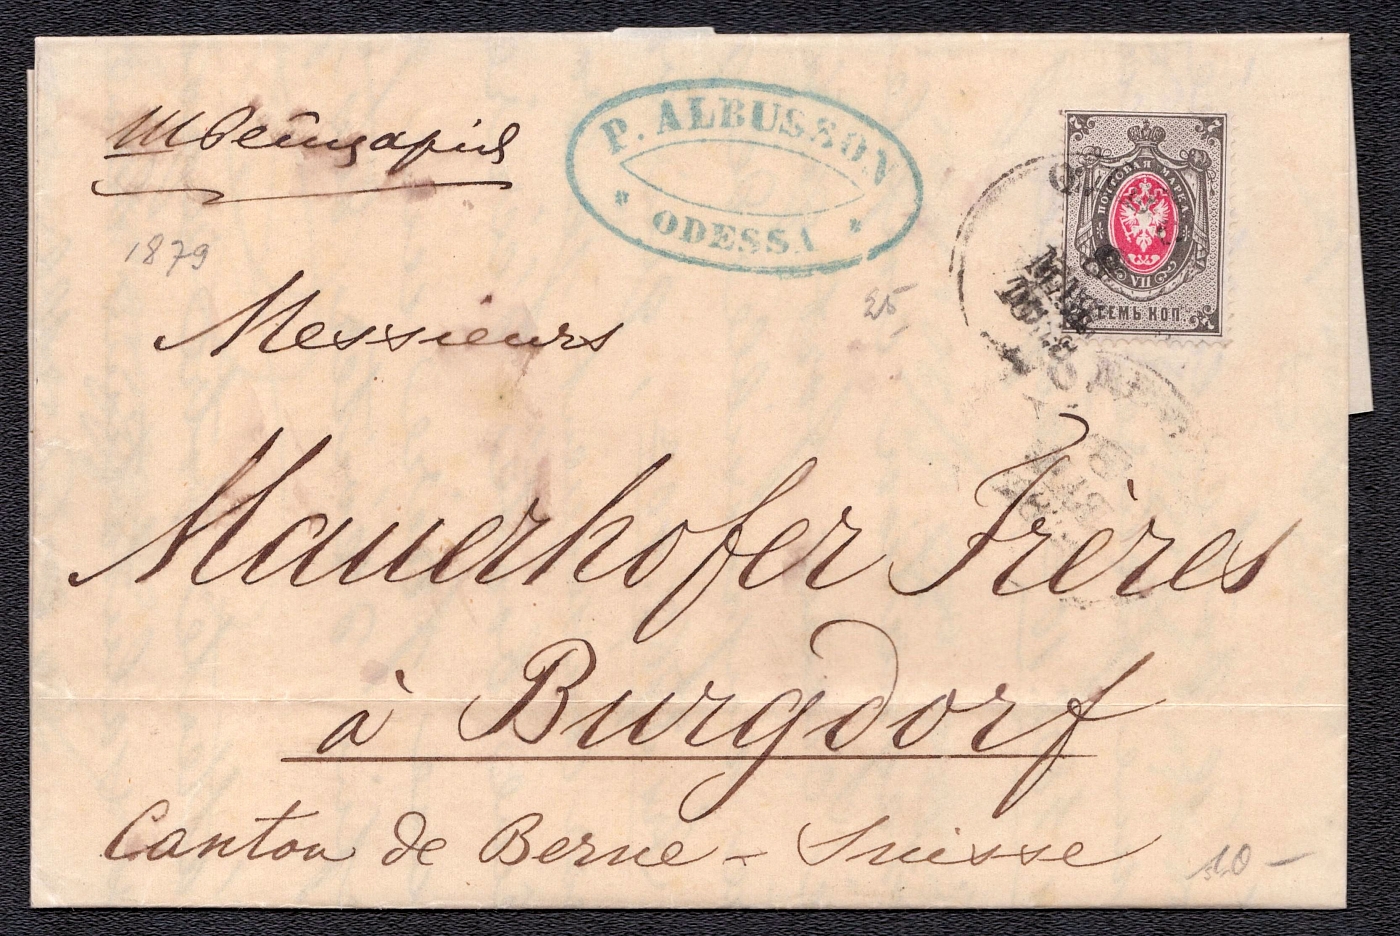 Швейцарія
P. ALBUSSON
ODESSA
ПОЧТОВАЯ МАРКА
VII
СЕМЬ КОП.
1879
25
Messieurs
Mauerhofer Frères
à Burgdorf
Canton de Berne - Suisse
10 -